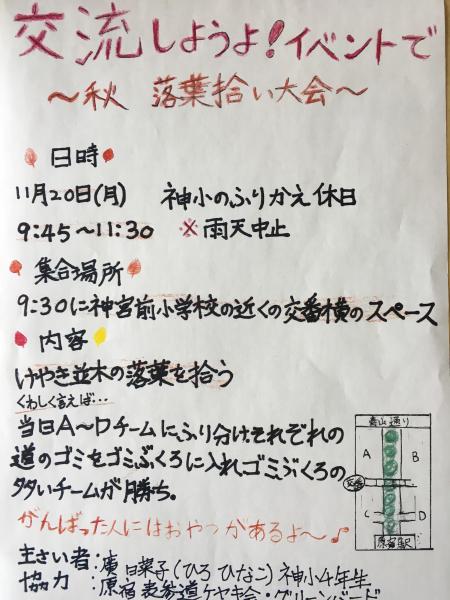 交流しようよ!イベントで
〜秋 落葉拾い大会〜
日時
11月20日(月) 神小のふりかえ休日
9:45〜11:30 ※雨天中止
集合場所
9:30に神宮前小学校の近くの交番横のスペース
内容
けやき並木の落葉を拾う
くわしく言えば…
当日A〜Dチームにふり分け、それぞれの
道のゴミをゴミぶくろに入れ、ゴミぶくろの
多いチームが勝ち。
青山通り
A B
交番
C D
原宿駅
がんばった人にはおやつがあるよ〜♪
主さい者:廣 日菜子(ひろ ひなこ)神小4年生
協力:原宿表参道ケヤキ会・グリーンバード